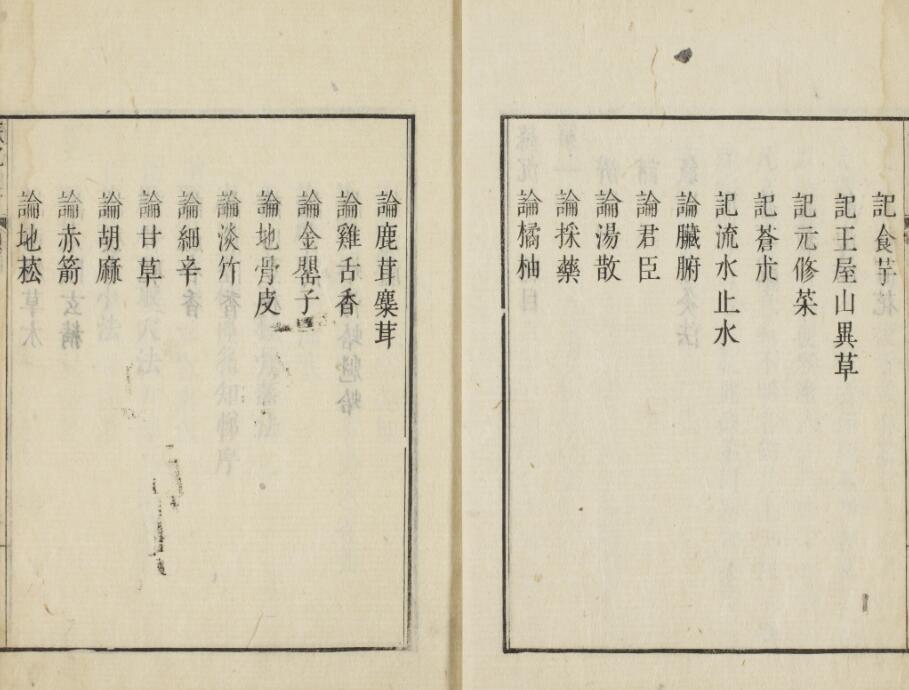 記食芋
記王屋山異草
記元修菜
記蒼朮
記流水止水
論臟腑
論君臣
論湯散
論採藥
論橘柚
論鹿茸麋茸
論雞舌香
論金罌子
論地骨皮
論淡竹
論細辛
論甘草
論胡麻
論赤箭
論地菘